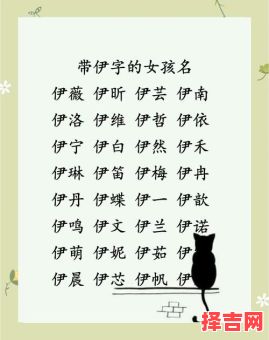 带伊字的女孩名
伊薇 伊昕 伊芸 伊南
伊洛 伊维 伊哲 伊依
伊宁 伊白 伊然 伊禾
伊琳 伊笛 伊梅 伊冉
伊丹 伊蝶 伊一 伊歆
伊鸣 伊文 伊兰 伊诺
伊萌 伊妮 伊茹 伊
伊晨 伊芯 伊帆 伊
择吉网